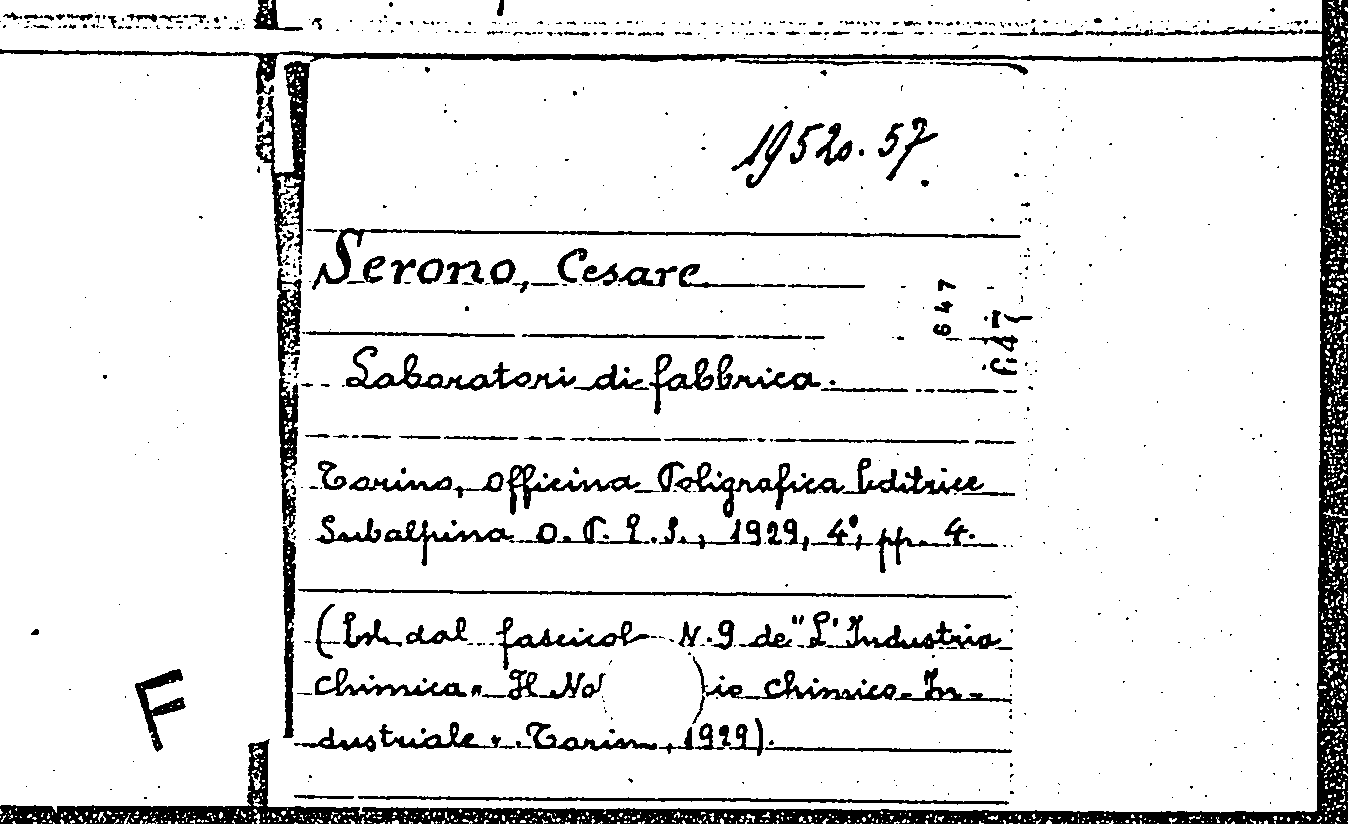 1952o.57.
Serono, Cesare
647
647
Laboratori di fabbrica.
Torino, Officina Poligrafica Editrice
Subalpina O.P.E.S., 1929, 4°, pp. 4.
(Est. dal fascicol N.9 de "L'Industria
chimica" Il No io chimico-In-
dustriale". Torin , 1929).
F